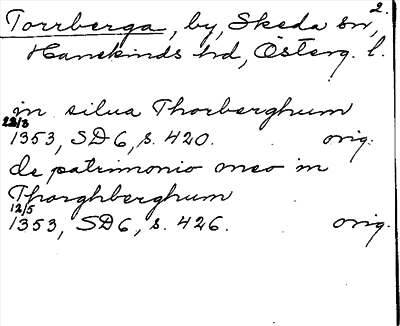 2.
Torrberga, by, Skeda sn,
Hanekinds hd, Österg. l.
in silua Thorberghum
22/3
1353, SD6, s. 420. orig.
de patrimonio meo in
Thorghberghum
12/5
1353, SD6, s. 426. orig.